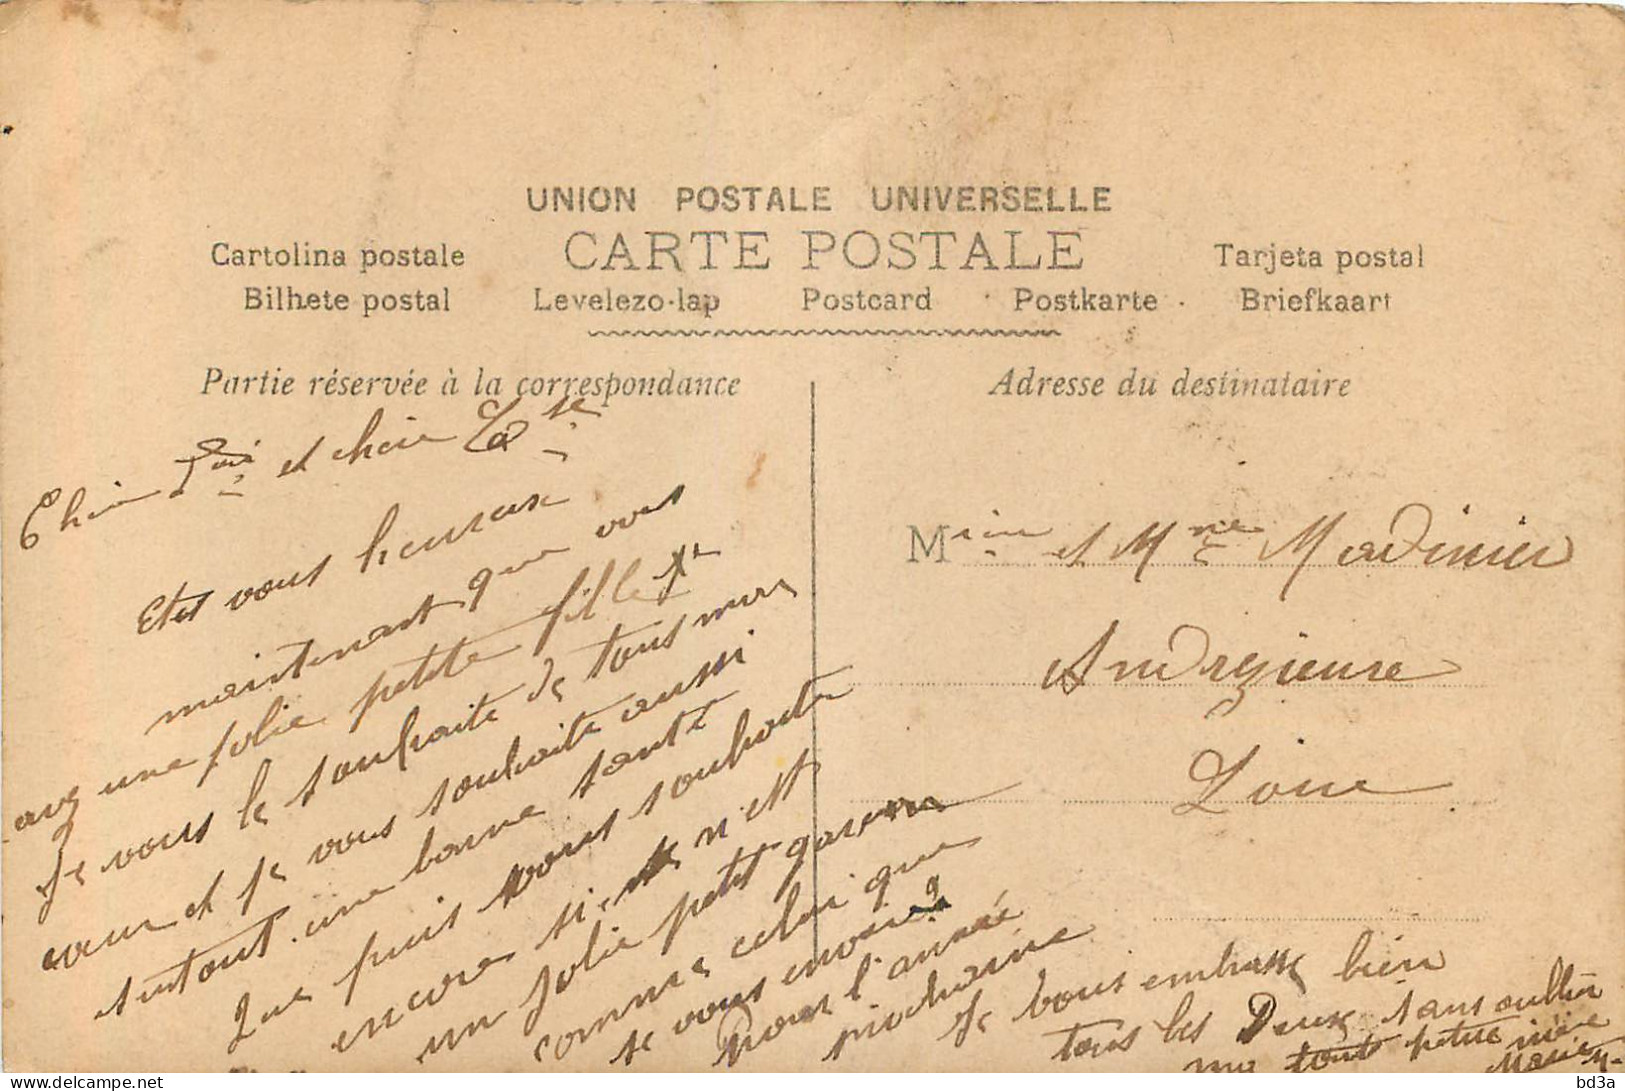 UNION POSTALE UNIVERSELLE
CARTE POSTALE
Cartolina postale
Tarjeta postal
Bilhete postal
Levelezo-lap
Postcard
Postkarte
Briefkaart
Partie réservée à la correspondance
et chère
Etes vous heureux
maintenant que vous
avez une jolie petite fille
Je vous le souhaite de tous mon
cœur et je vous souhaite aussi
surtout une bonne santé
Que puis vous souhaiter
encore si ce n'est
un jolie petit garcon
comme celui que
je vous envoie
pour l'année
prochaine
Je vous embrasse bien
tous les Deux sans oublier
ma toute petite nièce
Adresse du destinataire
M et Mme Madinier
Andrezieux
Loire
delcampe.net
bd3a